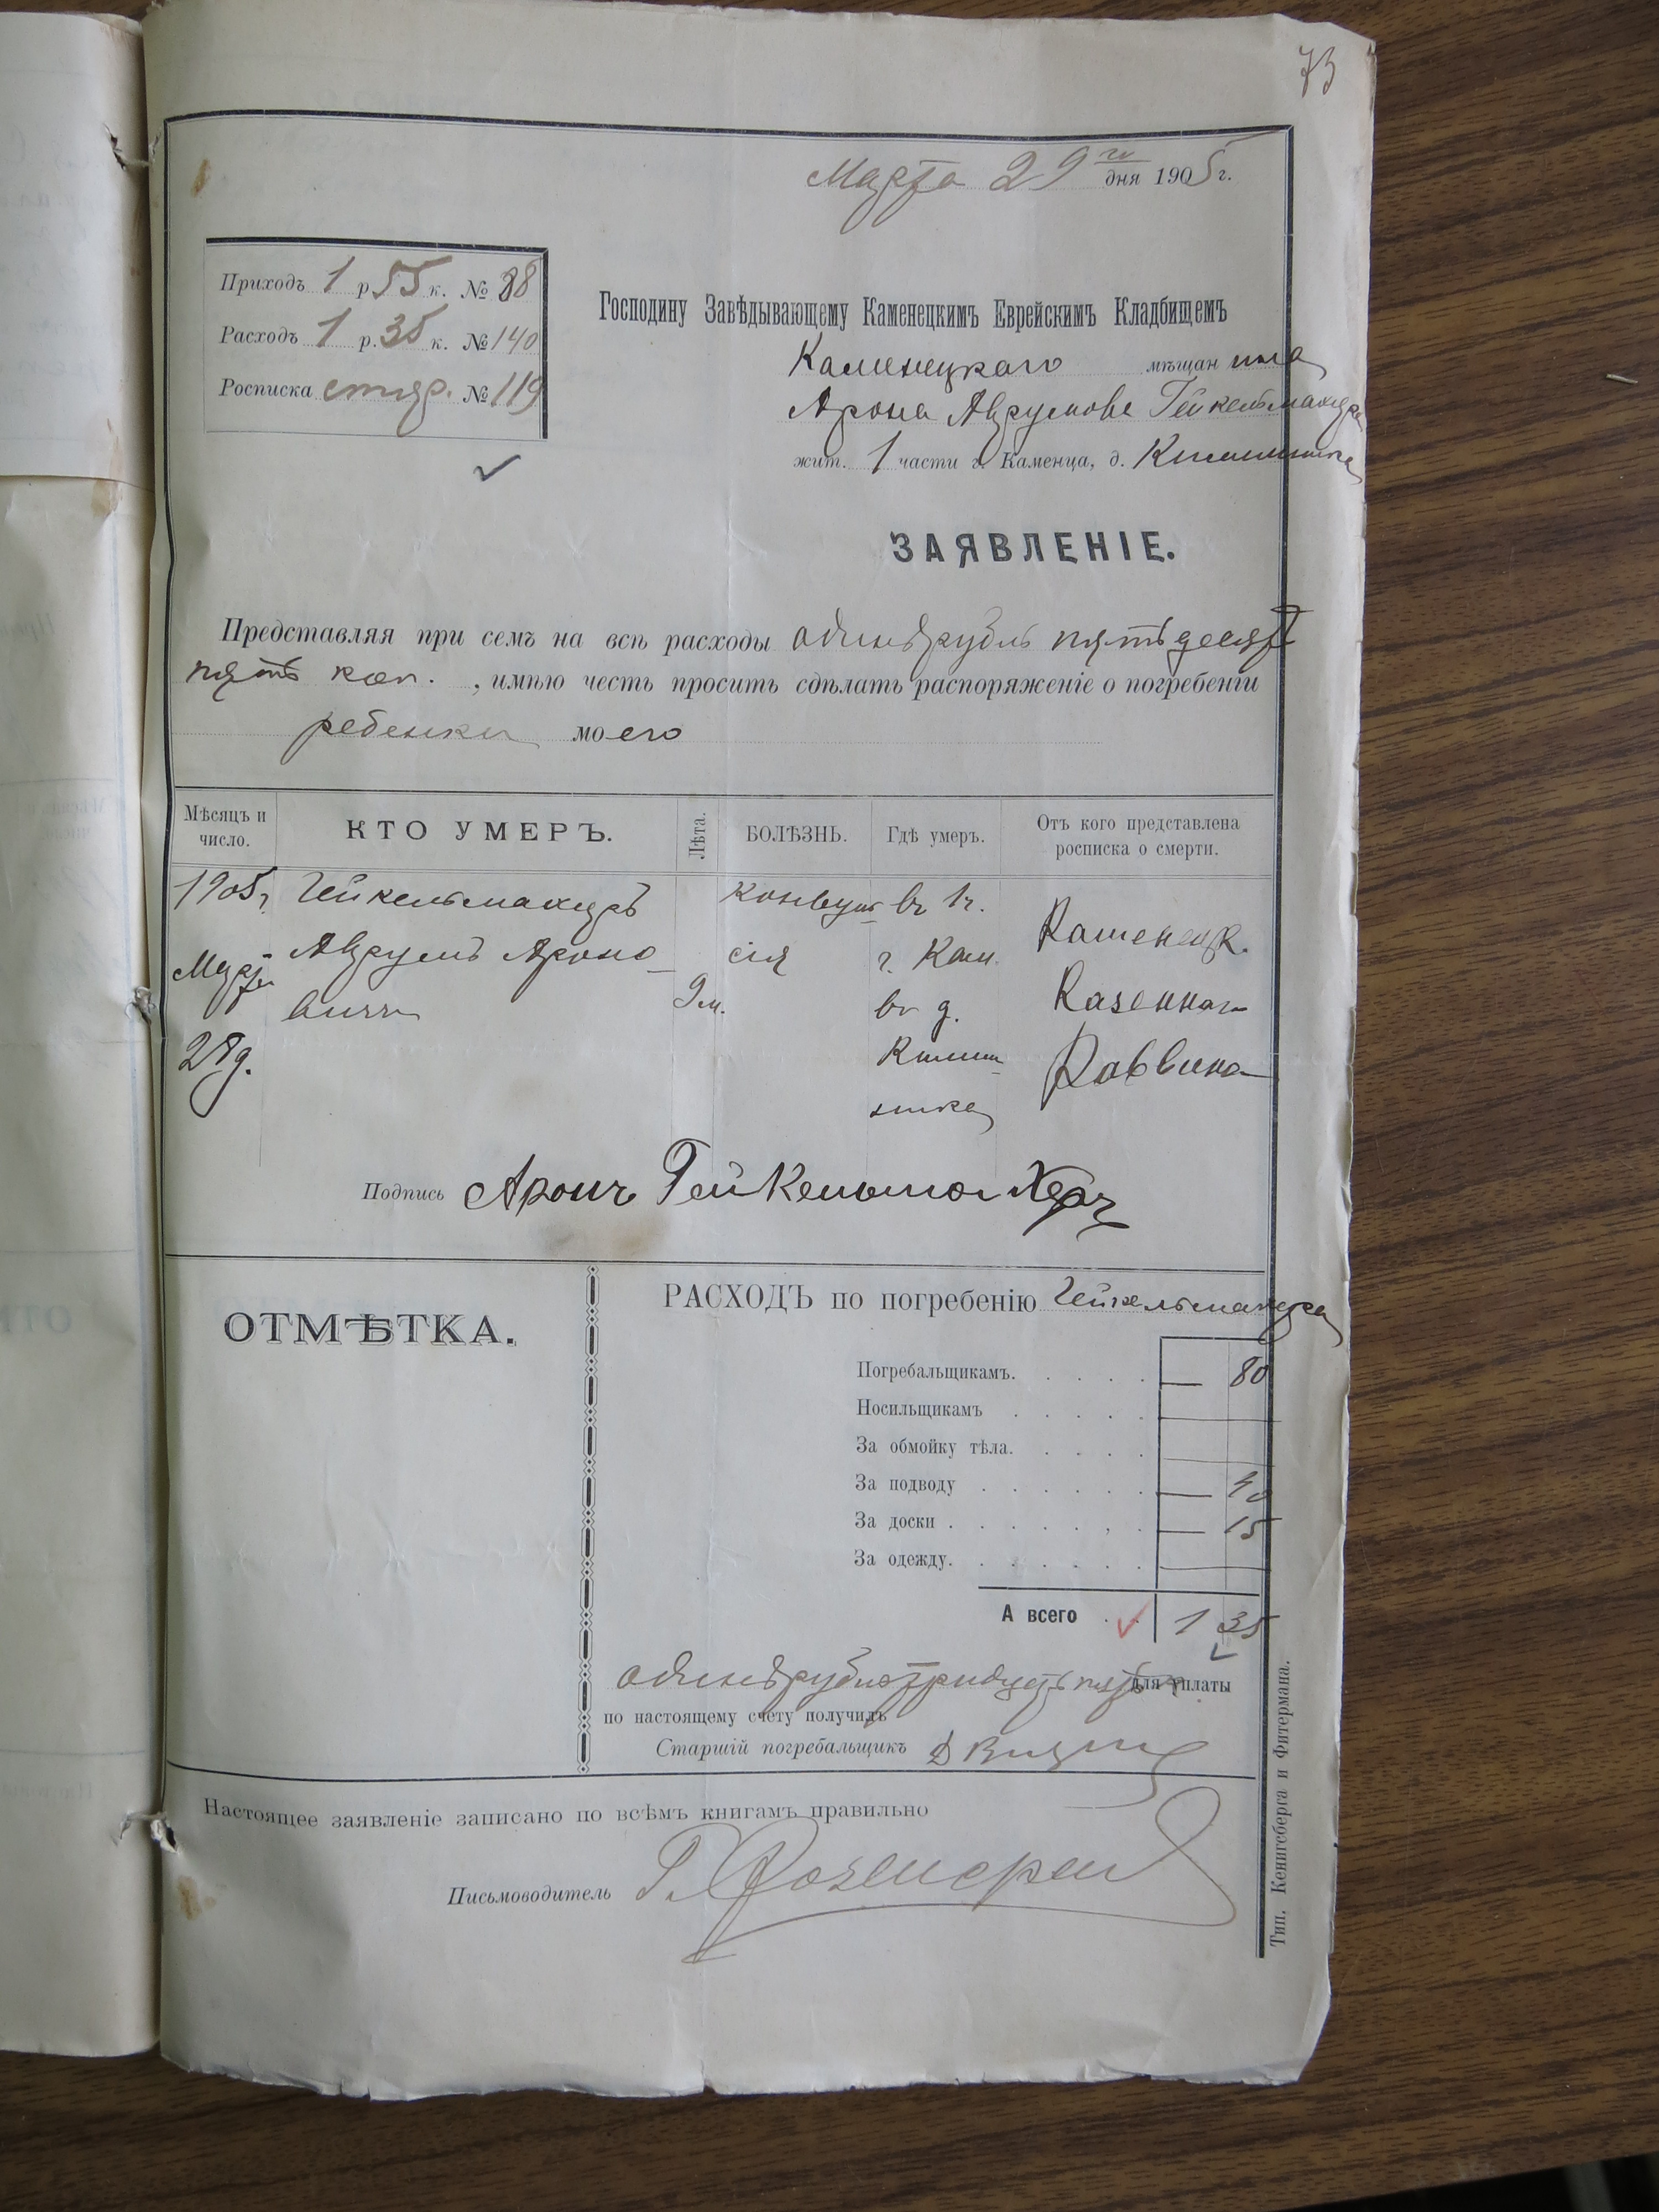 73
Марта 29го дня 1905 г.
Приходъ 1 р. 55 к. № 88
Расходъ 1 р. 35 к. № 140
Росписка стар. № 119
Господину Завѣдывающему Каменецкимъ Еврейскимъ Кладбищемъ
Каменецкаго мѣщанина
Арона Аврумова Гейкельмахера
жит. 1 части г. Каменца, д.
ЗАЯВЛЕНІЕ.
Представляя при семъ на всѣ расходы одинъ рубль пятьдесят
пять коп. , имѣю честь просить сдѣлать распоряженіе о погребеніи
ребенка моего
Мѣсяцъ и число.
КТО УМЕРЪ.
Лѣта.
БОЛѢЗНЬ.
Гдѣ умеръ.
Отъ кого представлена росписка о смерти.
1905 г. Гейкельмахеръ конвуль- въ 1 ч. Каменецк.
Марта Аврумъ Ароно- сія г. Кам. Казеннаго
вичъ 9 м. въ д.
28 д. Раввина
Подпись Аронъ Гейкельмахеръ
ОТМѢТКА.
РАСХОДЪ по погребенію Гейкельмахера
Погребальщикамъ. — 80
Носильщикамъ
За обмойку тѣла.
За подводу — 40
За доски — 15
За одежду.
А всего 1 35
одинъ рубль тридцать пять для уплаты
по настоящему счету получилъ
Старшій погребальщикъ
Настоящее заявленіе записано по всѣмъ книгамъ правильно
Письмоводитель
Тип. Кенигсберга и Фитермана.